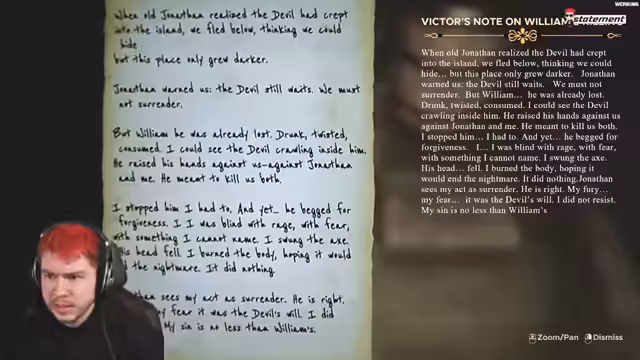 WERBUNG
statement
VICTOR'S NOTE ON WILLIAM'S
When old Jonathan realized the Devil had crept
into the island, we fled below, thinking we could
hide
but this place only grew darker.
Jonathan warned us: the Devil still waits. We must
not surrender.
But William he was already lost. Drunk, twisted,
consumed. I could see the Devil crawling inside him.
He raised his hands against us-against Jonathan
and me. He meant to kill us both.
I stopped him I had to. And yet_ he begged for
forgiveness. I I was blind with rage, with fear,
with something I cannot name. I swung the axe.
His head fell. I burned the body, hoping it would
the nightmare. It did nothing.
sees my act as surrender. He is right.
fear it was the Devil's will. I did
My sin is no less than William's.
When old Jonathan realized the Devil had crept
into the island, we fled below, thinking we could
hide... but this place only grew darker. Jonathan
warned us: the Devil still waits. We must not
surrender. But William... he was already lost.
Drunk, twisted, consumed. I could see the Devil
crawling inside him. He raised his hands against us
against Jonathan and me. He meant to kill us both.
I stopped him... I had to. And yet... he begged for
forgiveness. I... I was blind with rage, with fear,
with something I cannot name. I swung the axe.
His head... fell. I burned the body, hoping it
would end the nightmare. It did nothing.Jonathan
sees my act as surrender. He is right. My fury...
my fear... it was the Devil's will. I did not resist.
My sin is no less than William's
Zoom/Pan
Dismiss